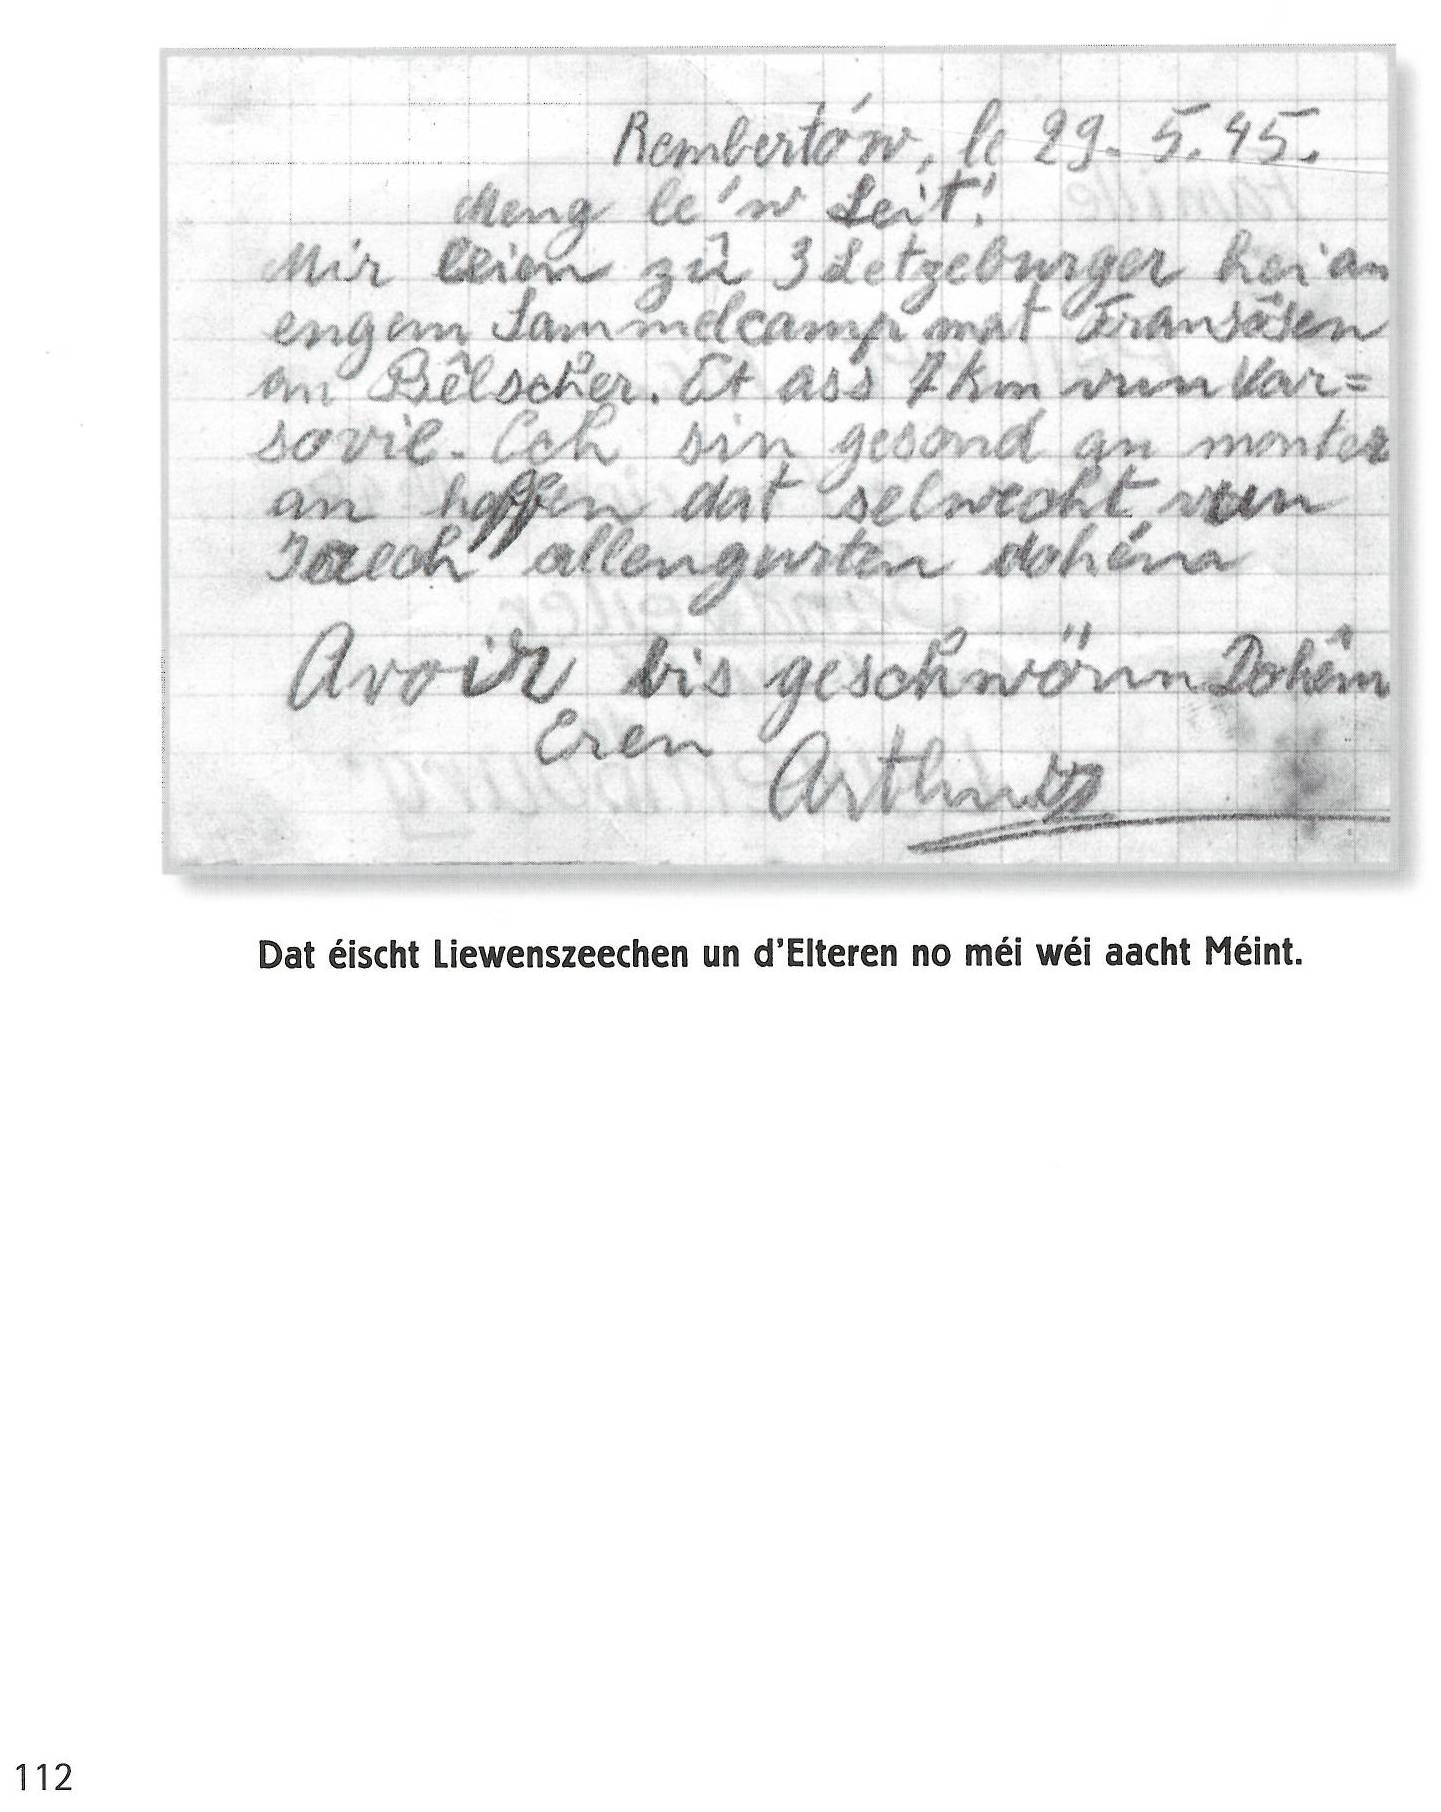 Rembertów, le 29. 5. 45.
Meng le'w Leit!
Mir leien zu 3 Letzeburger hei an
engem Sammelcamp mat Fransösen
an Bêlscher. Et ass 7 km vun Var=
sovie. Ech sin gesond an monter
an hoffen dat selwecht vun
Iaech allengurten dohém
Avoir bis geschwönn Dohêm
Eren
Arthur
Dat éischt Liewenszeechen un d'Elteren no méi wéi aacht Méint.
112